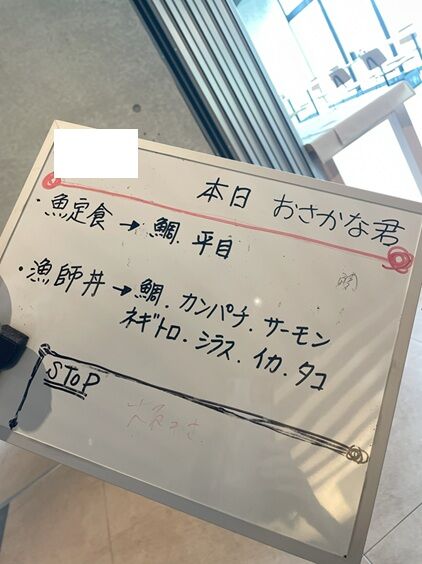 本日 おさかな君
・魚定食 → 鯛. 平目
・漁師丼 → 鯛. カンパチ. サーモン
ネギトロ. シラス. イカ. タコ
STOP